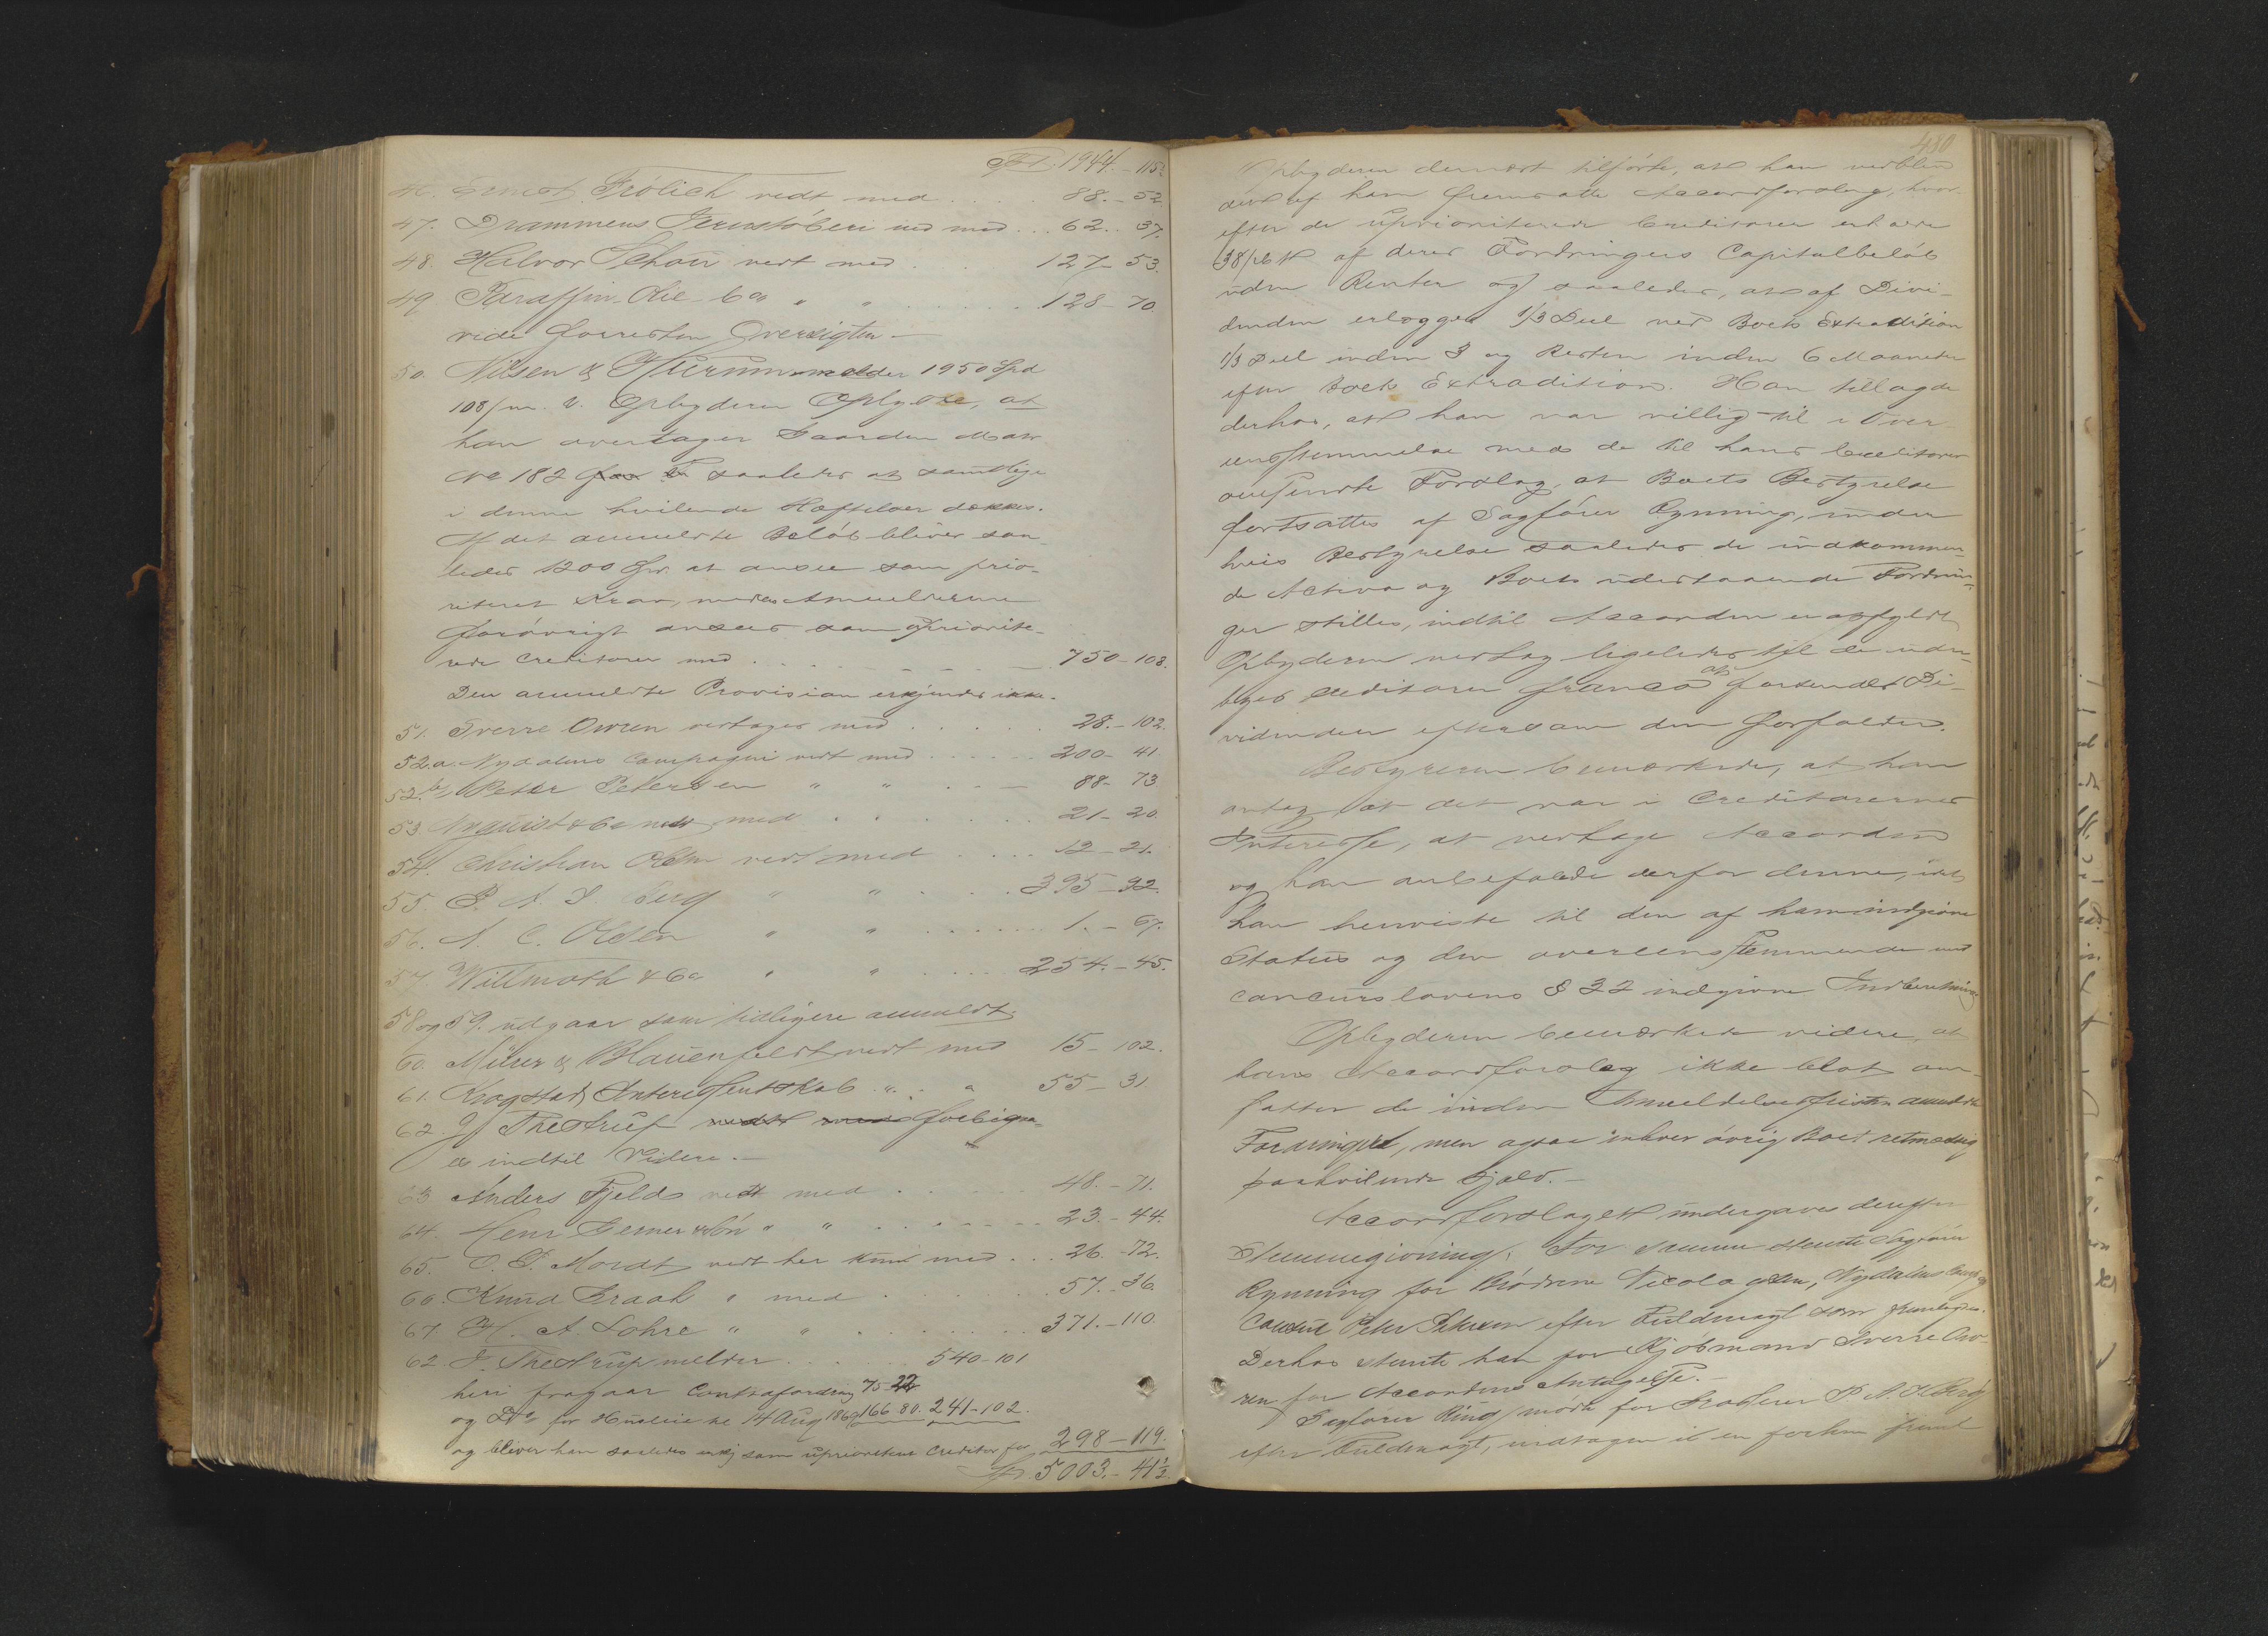 Tr. 1944. - 115½
46. Ernst Frölich vedt med . . . . 88. - 52.
47. Drammens Jernstöberi ved med . . . 62. - 37.
48. Halvor Schou vedt med . . . 127 - 53.
49 Paraffin-Olie-Co " " . . . . . 128 - 70.
vide forresten Oversigten -
50. Nilsen & Hiermm melder 1950 Spd
108/ m. V. Opbyderen Oplyste, at
han overtager Gaarden Matr
No 182 saaledes at samtlige
i denne hvilende Hæftelser dækkes.
Af det anmeldte Beløb bliver saa-
ledes 1200 Spd. at ansee som prio-
riteret Krav, medens Anmelderne
forövrigt ansees som upriorite-
rede Creditorer med . . . . . . 750 - 108.
Den anmeldte Provision erkjendes ikke.
51. Sverre Owren vedtages med . . . . . 28. - 102.
52.a. Nydalens Compagni vedt med . . . . . 200 - 41.
52.b, Peter Petersen " " . . - 88 - 73
53 Nyquist & Co vedt med . . . . . . 21 - 20.
54. Christian Olsen vedt med . . . . 12 - 21.
55. P. A. S. Berg " " . . . . 395 - 92.
56. A. C. Olsen " " . . . . . . 1. - 67.
57. Willmoth & Co " " . . . . 254. - 45.
58 og 59. udgaar som tidligere anmeldt.
60. Müller & Blauenfeldt vedt med 15 - 102.
61. Krogstad Interessentskab " . " 55 - 31
62. J. Thestrup vedt med forbigaa-
es indtil Videre. -
63 Anders Fjeld vedt med . . . . . 48. - 71.
64. Henr Gerner & Sön " " . . . . . 23. - 44.
65. O. P. Mordt vedt her kun med . . . 26. - 72.
66. Knud Graah " med . . . . . 57. - 36.
67. H. A. Lohre " " . . . . . . 371. - 110.
62 J. Thestrup melder . . . . . 540 - 101
heri fragaar Contrafordring 75 22
og Do for Husleie til 14 Aug 1869 166. 80. 241 - 102.
og bliver han saaledes erkj som uprioriteret Creditor for 298 - 119.
Sp. 5003. - 41½.
430
Opbyderen dernæst tilførte, at han vedblev
det af ham fremsatte Accordforslag, hvor-
efter de uprioriterede Creditorer erholde
38 pCt af deres Fordringers Capitalbeløb
uden Renter og saaledes, at af Divi-
denden erlægges 1/3 Deel ved Boets Extradition
1/3 Deel inden 3 og Resten inden 6 Maaneder
efter Boets Extradition. Han tillagde
derhos, at han var villig til i Over
eensstemmelse med de til hans Creditorer
omsendte Forslag, at Boets Bestyrelse
fortsattes af Sagfører Rynning, under
hvis Bestyrelse saaledes de indkommen-
de Activa og Boets udestaaende Fordrin-
ger stilles, indtil Accorden er opfyldt
Opbyderen vedtog ligeledes til de uden-
byes Creditorer franco at forsende Di-
videnden eftersom den forfalder.
Bestyreren bemærkede, at han
antog at det var i Creditorernes
Interesse, at vedtage Accorden
og han anbefalede derfor denne, idet
han henviste til den af ham indgivne
Status og den overeensstemmende med
Concurslovens § 32 indgivne Indberetning
Opbyderen bemærkede videre, at
hans Accordforslag ikke blot om-
fatter de inden Anmeldelsesfristen anmeldte
Fordringer, men ogsaa enhver övrig Boet retmæssig
paahvilende Gjæld. -
Accordforslaget undergaves derefter
Stemmegivning. For samme stemte Sagfører
Rynning for Brødrene Nicolaysen, Nydalens Comp og
Consul Peter Petersen efter Fuldmagt som fremlagdes.
Derhos stemte han for Kjøbmand Sverre Ow-
ren for Accordens Antagelse. -
Sagfører Ring mødte for Grosserer P. A. S. Berg
efter Fuldmagt, modtagen i en forhen fremt